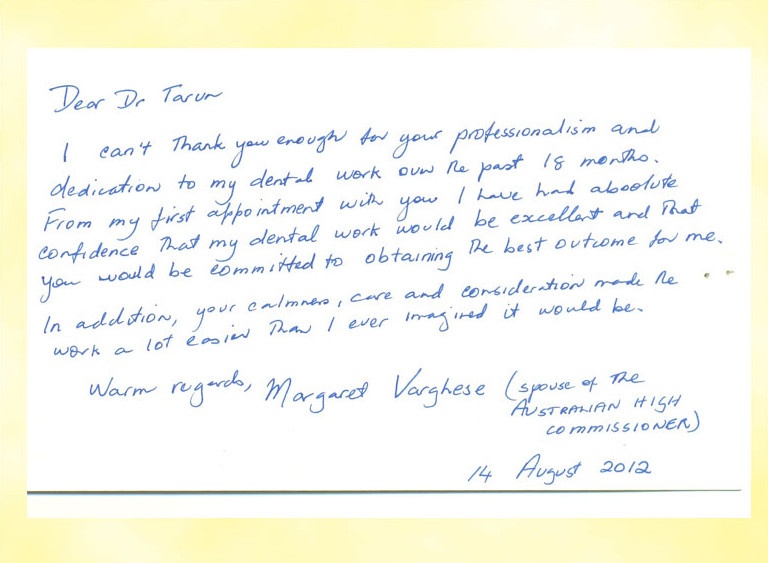 Dear Dr Tarun
I can't thank you enough for your professionalism and
dedication to my dental work over the past 18 months.
From my first appointment with you I have had absolute
confidence that my dental work would be excellent and that
you would be committed to obtaining the best outcome for me.
In addition, your calmness, care and consideration made the
work a lot easier than I ever imagined it would be.
Warm regards, Margaret Varghese (spouse of the
AUSTRALIAN HIGH
COMMISSIONER)
14 August 2012